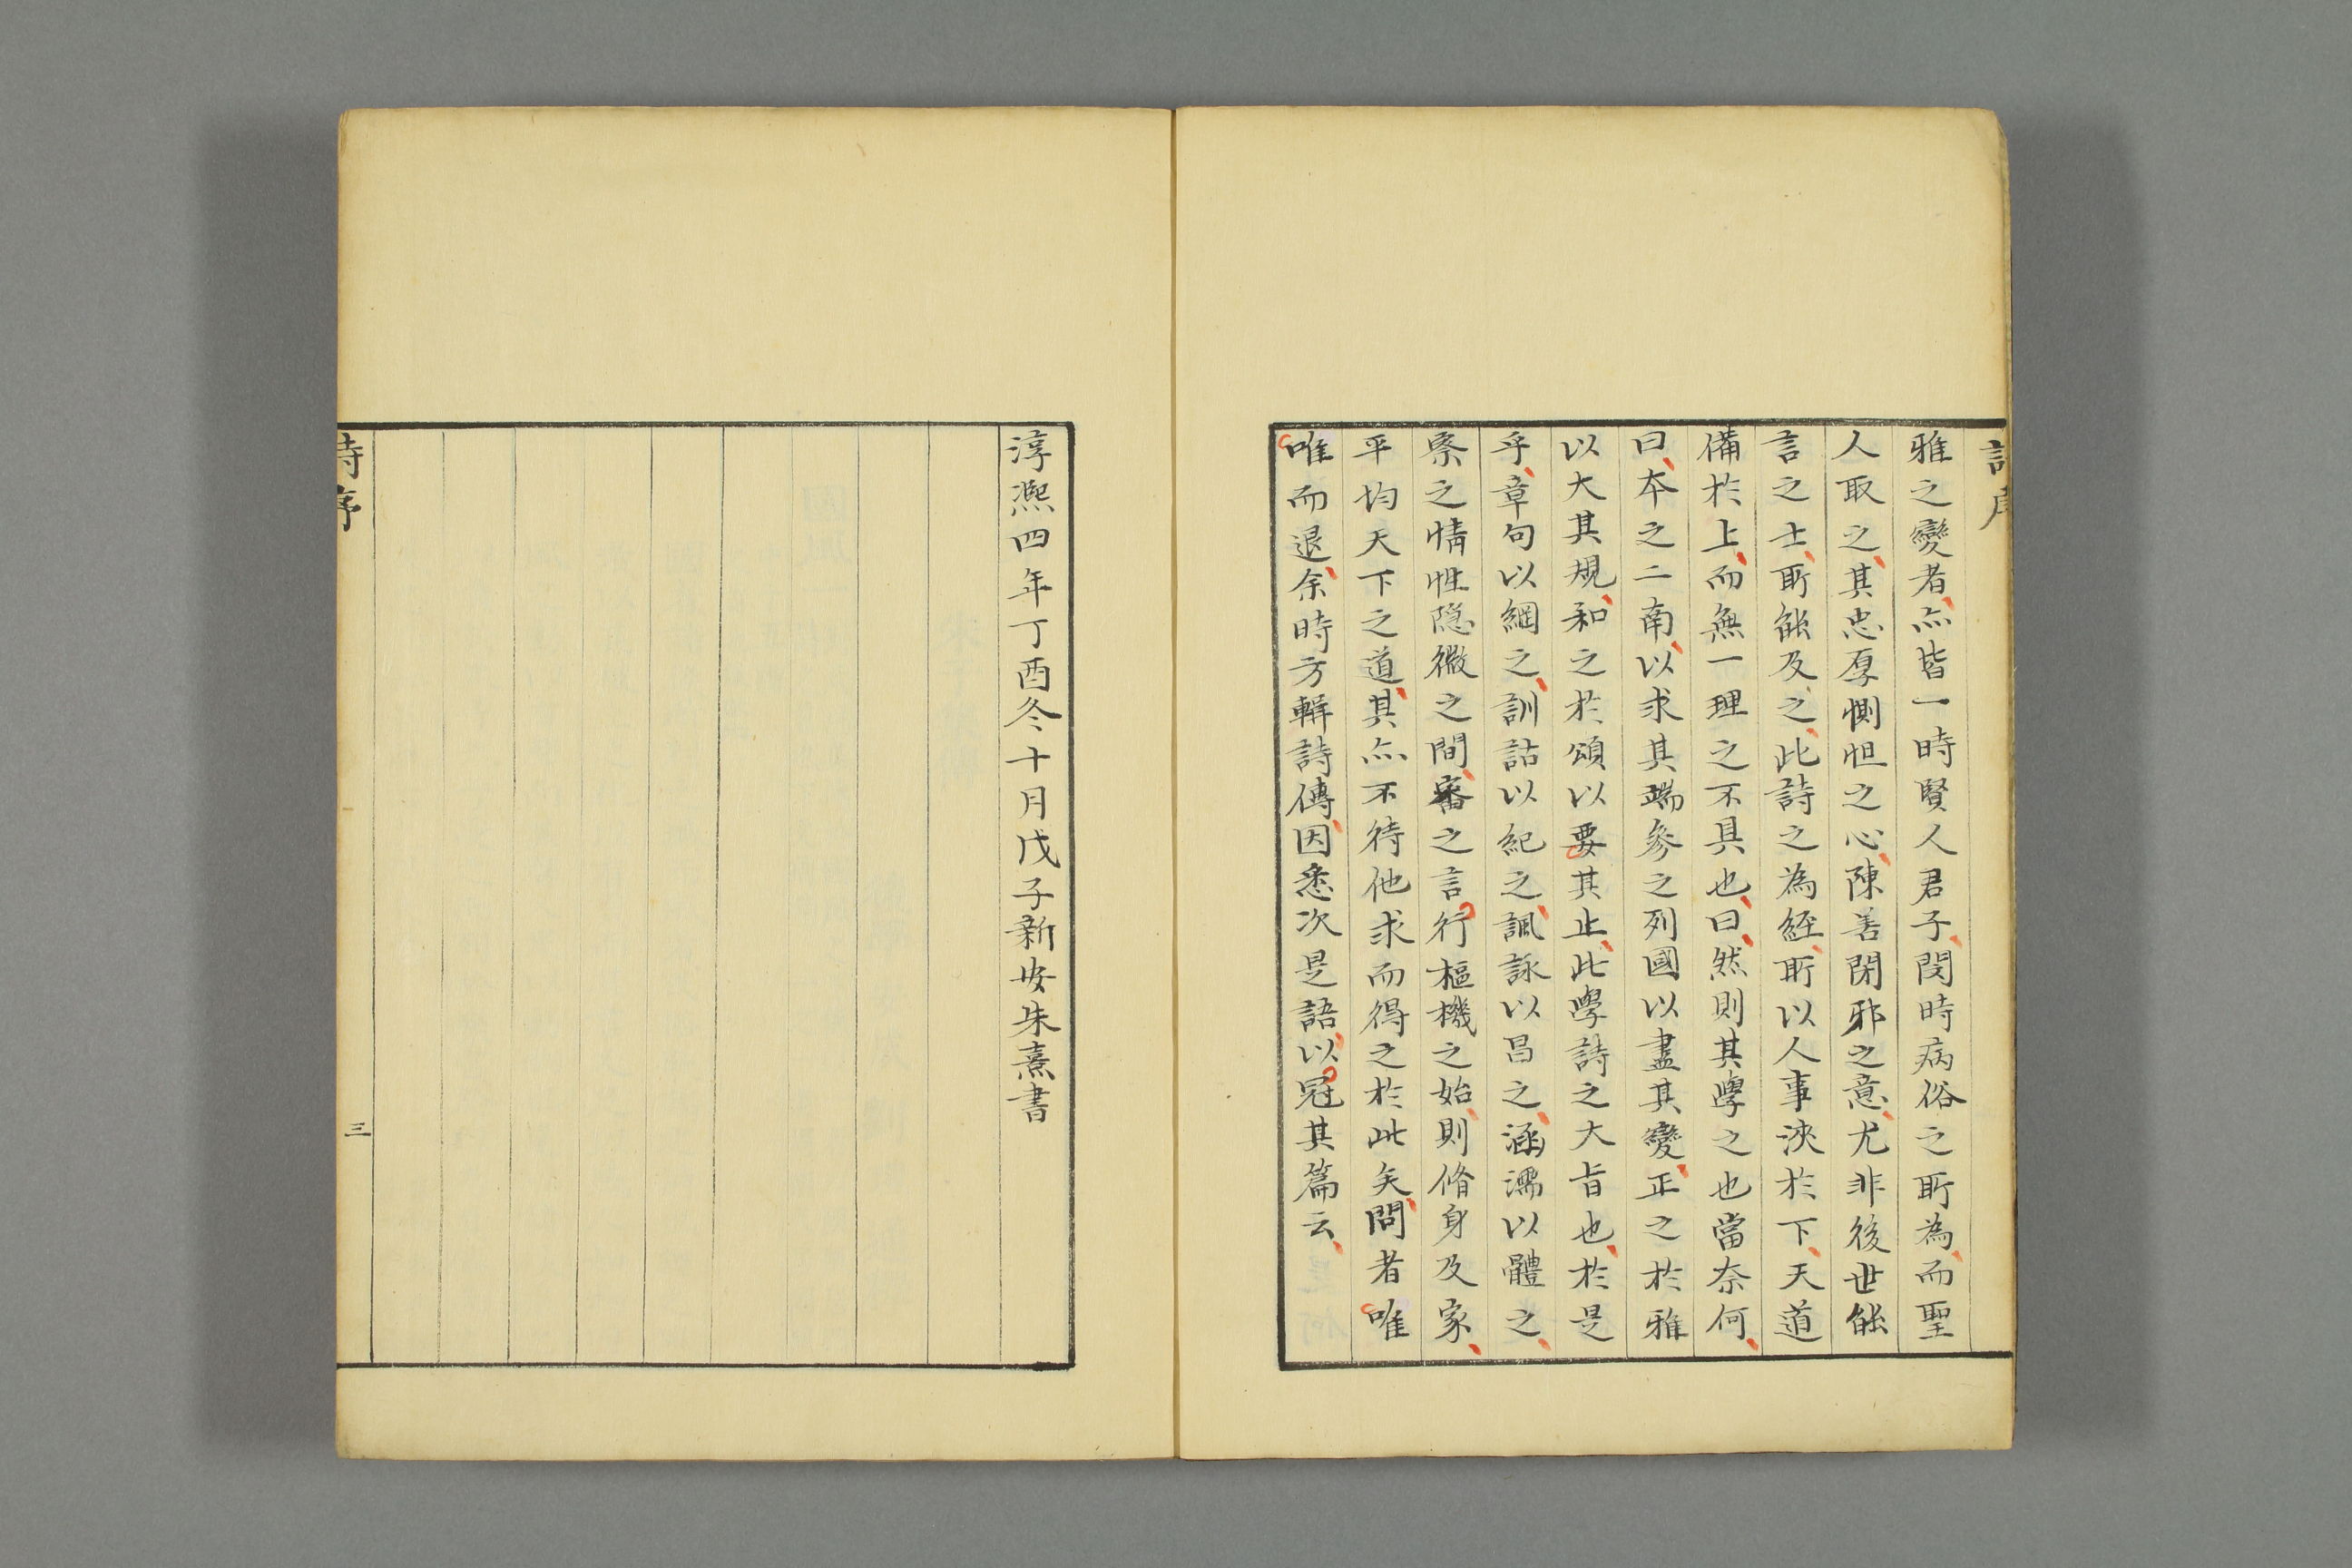 詩序
雅之變者亦皆一時賢人君子閔時病俗之所為而聖
人取之其忠厚惻怛之心陳善閉邪之意尤非後世能
言之士所能及之此詩之為經所以人事浹於下天道
備於上而無一理之不具也曰然則其學之也當奈何
曰本之二南以求其端參之列國以盡其變正之於雅
以大其規和之於頌以要其止此學詩之大旨也於是
乎章句以綱之訓詁以紀之諷詠以昌之涵濡以體之
察之情性隱微之間審之言行樞機之始則脩身及家
平均天下之道其亦不待他求而得之於此矣問者唯
唯而退余時方輯詩傳因悉次是語以冠其篇云
淳熙四年丁酉冬十月戊子新安朱熹書
詩序
三